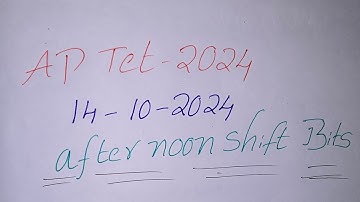 AP Tet - 2024
14 - 10 - 2024
after noon shift Bits